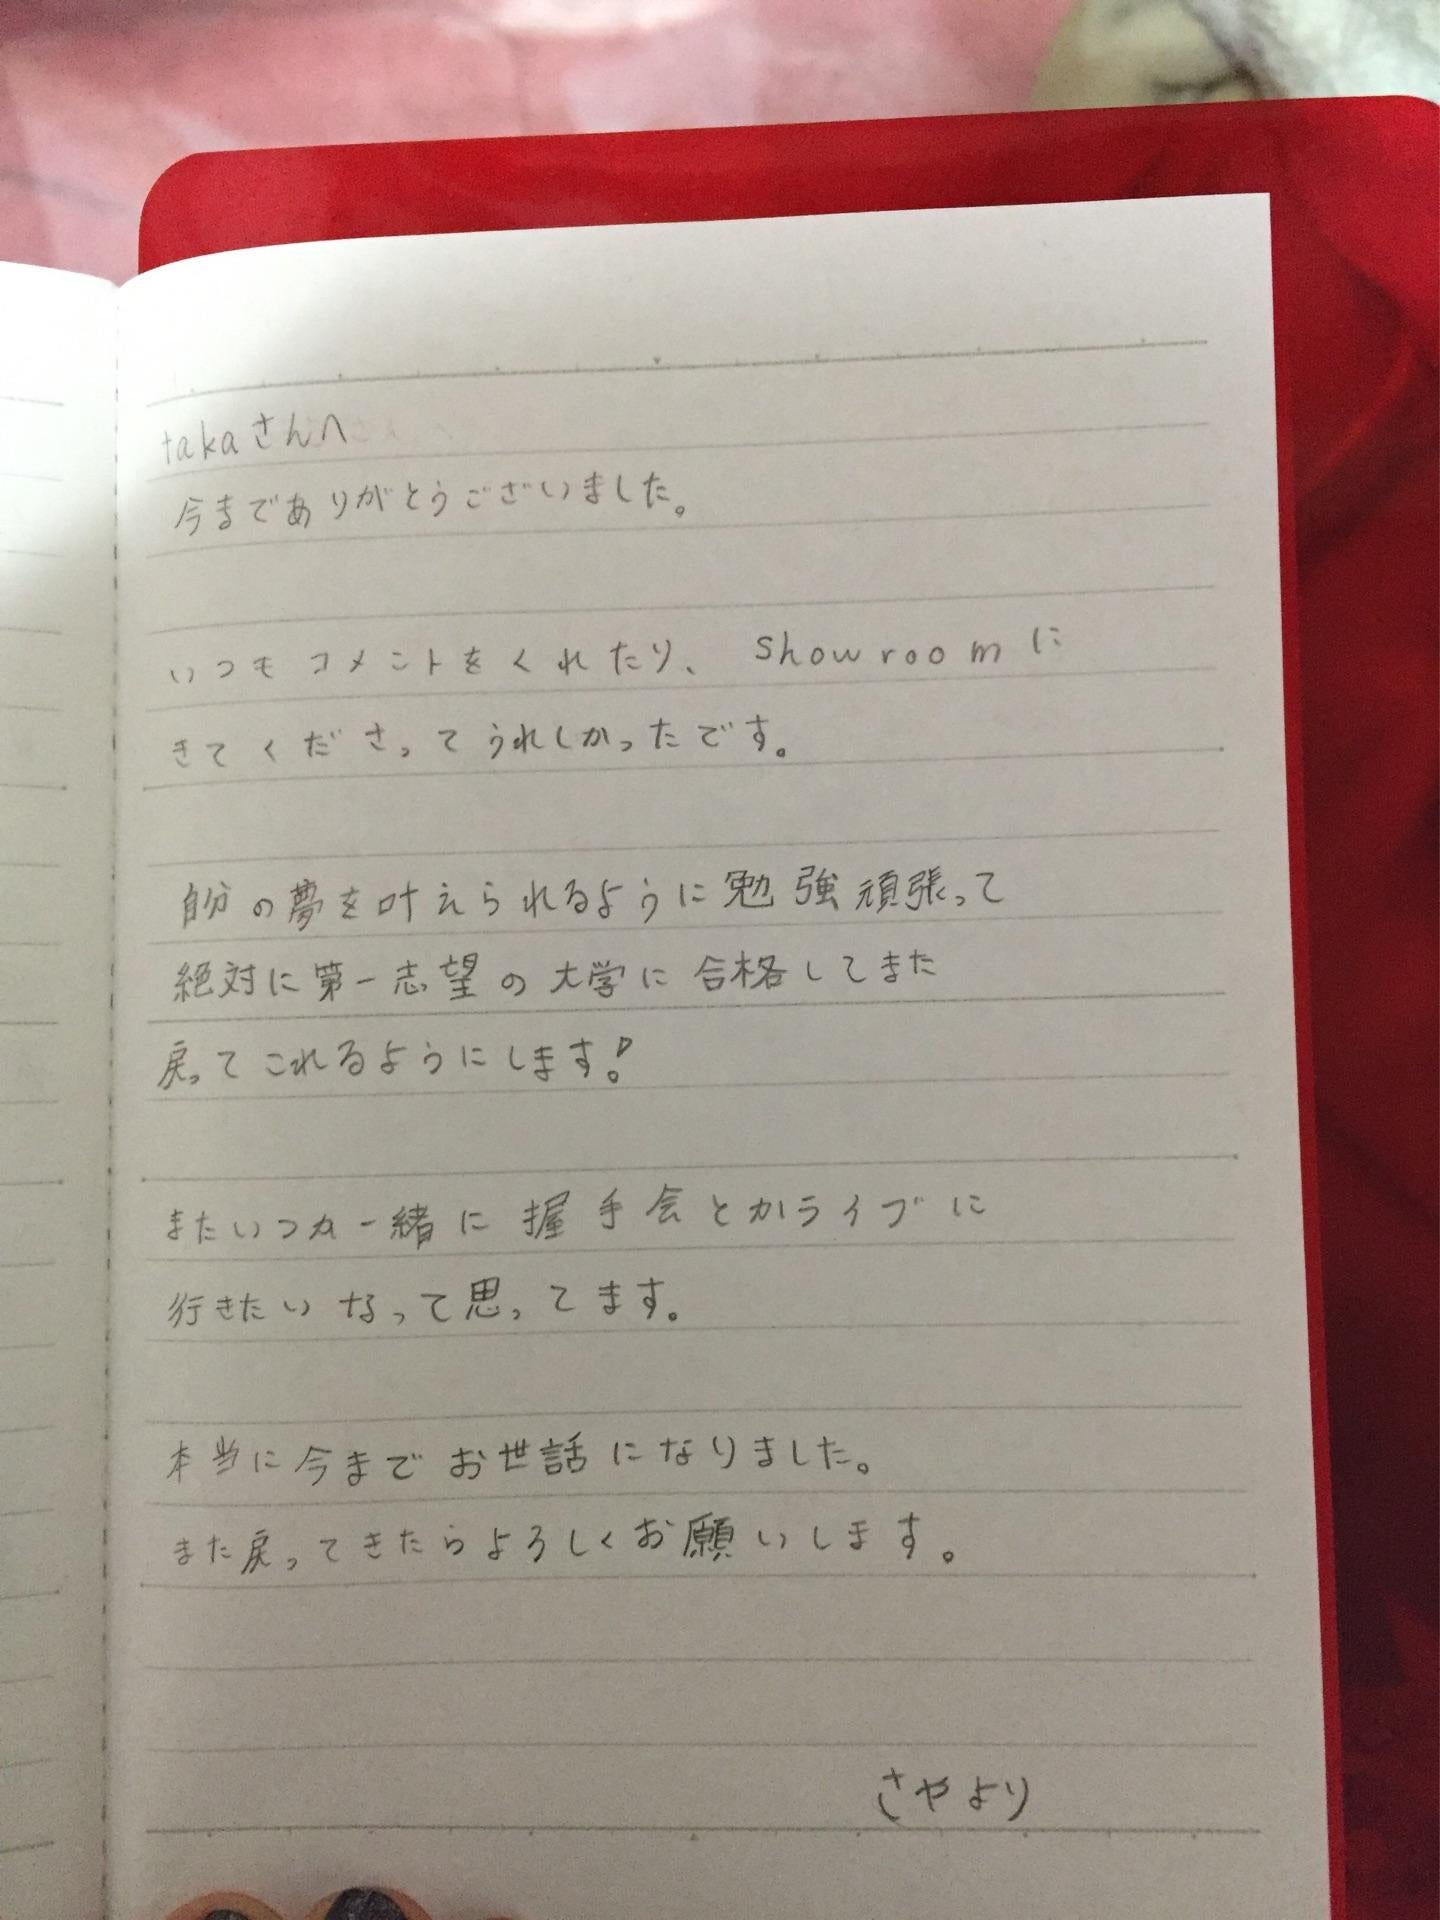 takaさんへ
今までありがとうございました。
いつもコメントをくれたり、showroomに
きてくださってうれしかったです。
自分の夢を叶えられるように勉強頑張って
絶対に第一志望の大学に合格してまた
戻ってこれるようにします!
またいつか一緒に握手会とかライブに
行きたいなって思ってます。
本当に今までお世話になりました。
また戻ってきたらよろしくお願いします。
さやより